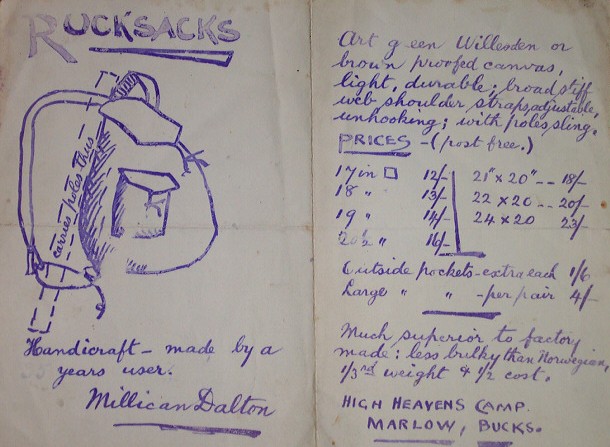 RUCKSACKS
carries poles thus
Handicraft – made by a
35 years user.
Millican Dalton
Art green Willesden or
brown proofed canvas,
light, durable; broad, stiff
web shoulder straps, adjustable,
unhooking; with poles, sling.
PRICES – (post free.)
17 in □ 12/- 21" x 20" -- 18/-
18 " 13/- 22 x 20 -- 20/-
19 " 14/- 24 x 20 23/-
20½ " 16/-
Outside pockets – extra each 1/6
Large " " – per pair 4/-
Much superior to factory
made: less bulky than Norwegian,
1/3rd weight & 1/2 cost.
HIGH HEAVENS CAMP.
MARLOW, BUCKS.